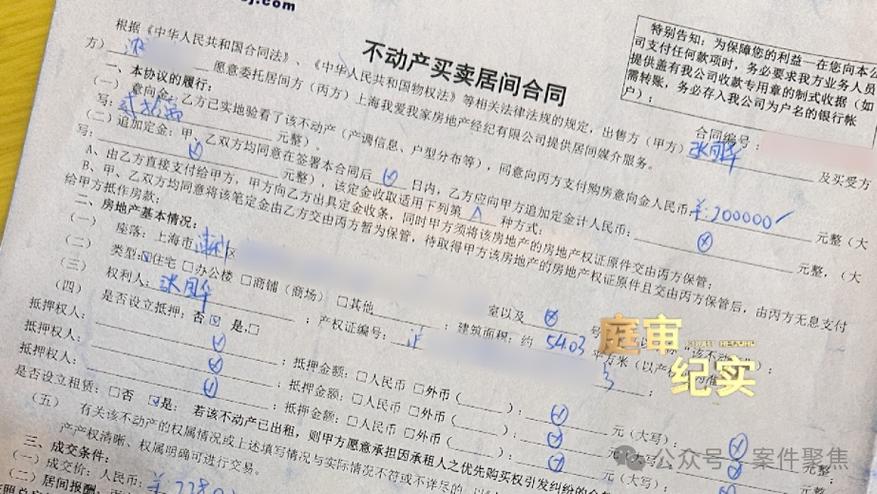 j.com
不动产买卖居间合同
特别告知：为保障您的利益—在您向本公
司支付任何款项时，务必要求我方业务人员
提供盖有我公司收款专用章的制式收据（如
需转账，务必存入我公司为户名的银行帐
户）；
合同编号：
根据《中华人民共和国合同法》、《中华人民共和国物权法》等相关法律法规的规定，出售方（甲方）张同华 及买受方
方） 愿意委托居间方（丙方）上海我爱我家房地产经纪有限公司提供居间媒介服务。
一、本协议的履行：
（一）意向金：乙方已实地验看了该不动产（产调信息、户型分布等），同意向丙方支付购房意向金人民币：¥200000 元整（大
写： 元整）。
（二）追加定金：甲、乙双方均同意在签署本合同后 日内，乙方应向甲方追加定金计人民币： 元整，（大
写： 元整），该定金收取适用下列第 A 种方式：
A、由乙方直接支付给甲方，甲方向乙方出具定金收条，同时甲方须将该房地产的房地产权证原件交由丙方保管；
B、甲、乙双方均同意将该笔定金由乙方交由丙方暂为保管，待取得甲方该房地产的房地产权证原件且交由丙方保管后，由丙方无息支付
给甲方抵作房款；
二、房地产基本情况：
（一） 座落：上海市 区 室以及 号
（二） 类型：☑住宅 □办公楼 □商铺（商场） □其他 ；建筑面积：约 54.03 平方米（以产
（三） 权利人：张同华 ；产权证编号：沪
（四） 是否设立抵押：否☑ 是,□
抵押权人： ；抵押金额：□人民币 □外币（ ）： 元（大写）：
抵押权人： ；抵押金额：□人民币 □外币（ ）： 元（大写）：
抵押权人： ；抵押金额：□人民币 □外币（ ）： 元（大写）： 元整；
是否设立租赁：□否 ☑是：若该不动产已出租，则甲方愿意承担因承租人之优先购买权引发纠纷的
（五） 有关该不动产的权属情况或上述填写情况与实际情况不符或不详尽的，以
产产权清晰、权属明确可进行交易。
三、成交条件：
（一）成交价：人民币：
（二）居间报酬：
庭审
纪实
公众号·案件聚焦